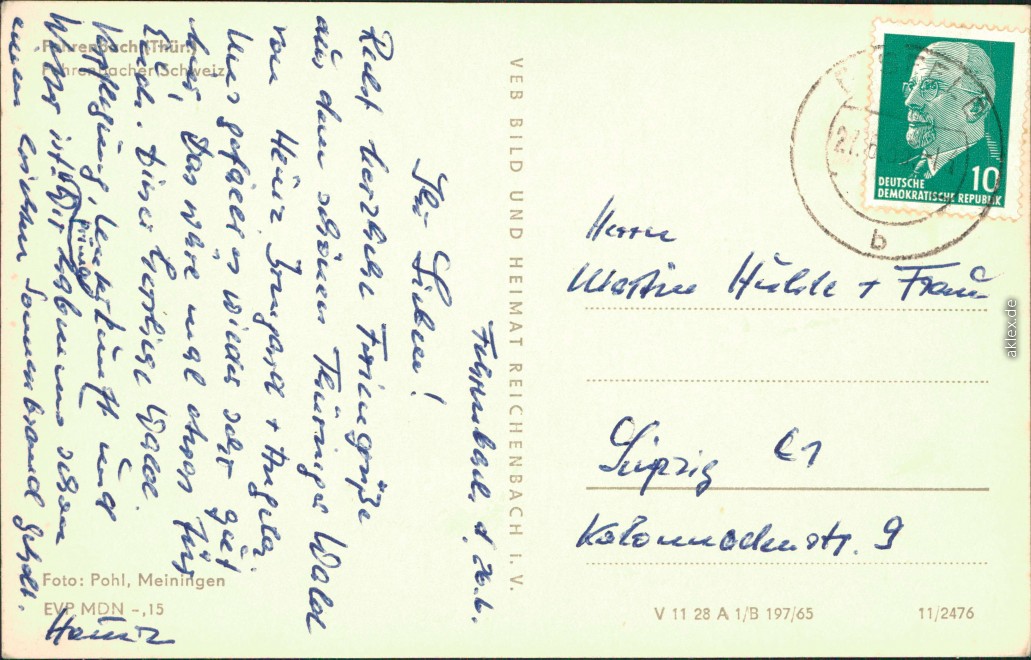 Fehrenbach (Thür.)
Fehrenbacher Schweiz
Fehrenbach, d. 26.6.
Ihr Lieben!
Recht herzliche Feriengrüße
aus dem schönen Thüringer Wald
von Heinz Irmgard + Angela.
Uns gefällt es wieder sehr gut
hier. Das wäre mal etwas für
Euch. Dieser herrliche Wald.
Verpflegung, Unterkunft und
Wetter ist prima. Wir haben uns schon
einen Sonnenbrand geholt.
Heinz
Foto: Pohl, Meiningen
EVP MDN -,15
VEB BILD UND HEIMAT REICHENBACH I. V.
DEUTSCHE
DEMOKRATISCHE REPUBLIK
10
b
Herrn
Martin + Frau
Leipzig C1
9
V 11 28 A 1/B 197/65
11/2476
aklex.de